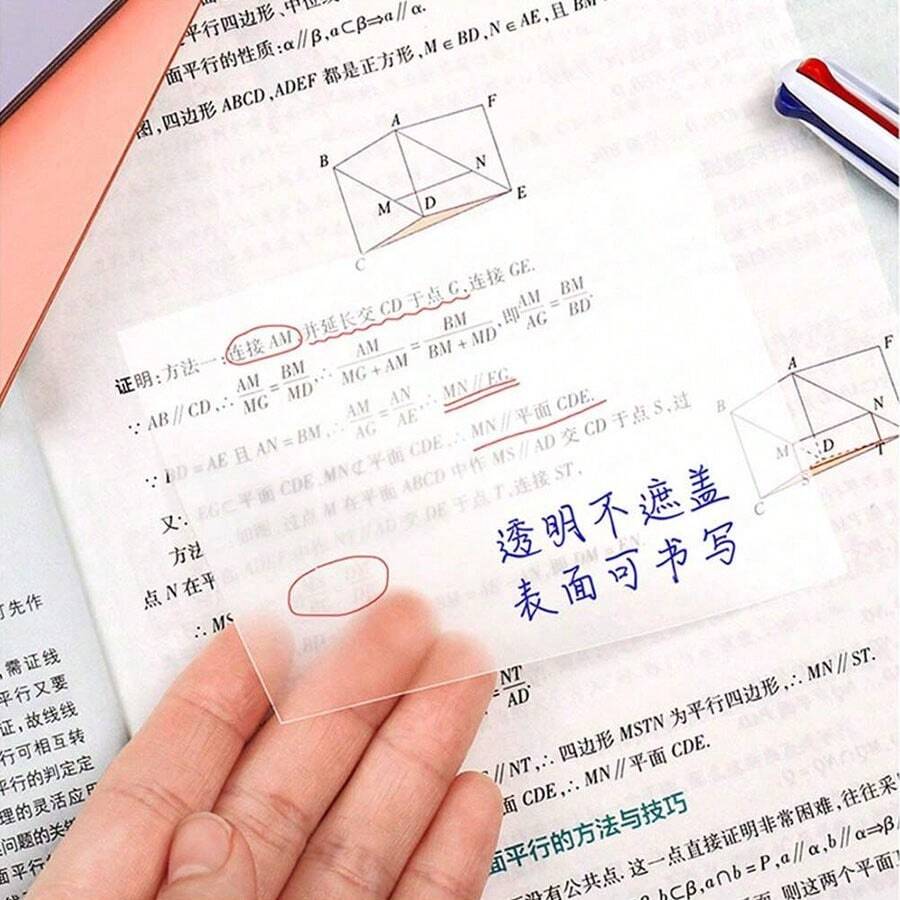 平行四边形、中位线
面平行的性质:α∥β,a⊂β⇒a∥α.
图,四边形 ABCD,ADEF 都是正方形,M∈BD,N∈AE,且 BM
A
F
B
N
M
D
E
C
证明:方法一:连接 AM 并延长交 CD 于点 G,连接 GE.
∵AB∥CD,∴AM/MG=BM/MD,∴AM/(MG+AM)=BM/(BM+MD),即AM/AG=BM/BD.
BD=AE 且 AN=BM,∴AM/AG=AN/AE,∴MN∥EG.
又∵EG⊂平面 CDE,MN⊄平面 CDE,∴MN∥平面 CDE.
方法
如图,过点 M 在平面 ABCD 中作 MS∥AD 交 CD 于点 S,过
点 N 在平面 ADEF 中作 NT∥AD 交 DE 于点 T,连接 ST,
∴MS
透明不遮盖
表面可书写
A
F
B
N
M
D
S
T
C
NT/AD
∥NT,∴四边形 MSTN 为平行四边形,∴MN∥ST.
面 CDE,∴MN∥平面 CDE.
面平行的方法与技巧
没有公共点.这一点直接证明非常困难,往往采
b⊂β,a∩b=P,a∥α,b∥α⇒β
则这两个平面
先作
需证线
平行又要
证,故线线
行可相互转
平行的判定定
理的灵活应用
问题的关键